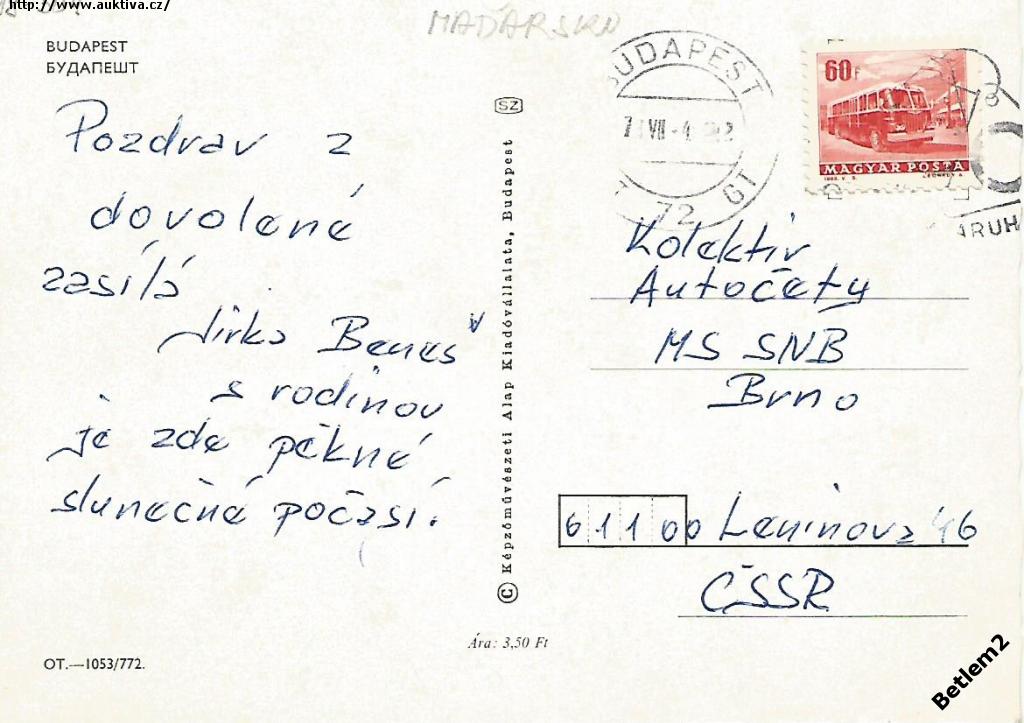 http://www.auktiva.cz/
MAĎARSKO
BUDAPEST
БУДАПЕШТ
Pozdrav z
dovolené
zasílá
Jirka Beneš
s rodinou
je zde pěkné
slunečné počasí.
SZ
© Képzőművészeti Alap Kiadóvállalata, Budapest
Ára: 3,50 Ft
OT.—1053/772.
BUDAPEST
72
60f
MAGYAR POSTA
ÁRUH
Kolektiv
Autočety
MS SNB
Brno
61100 Leninova 46
ČSSR
Betlem2